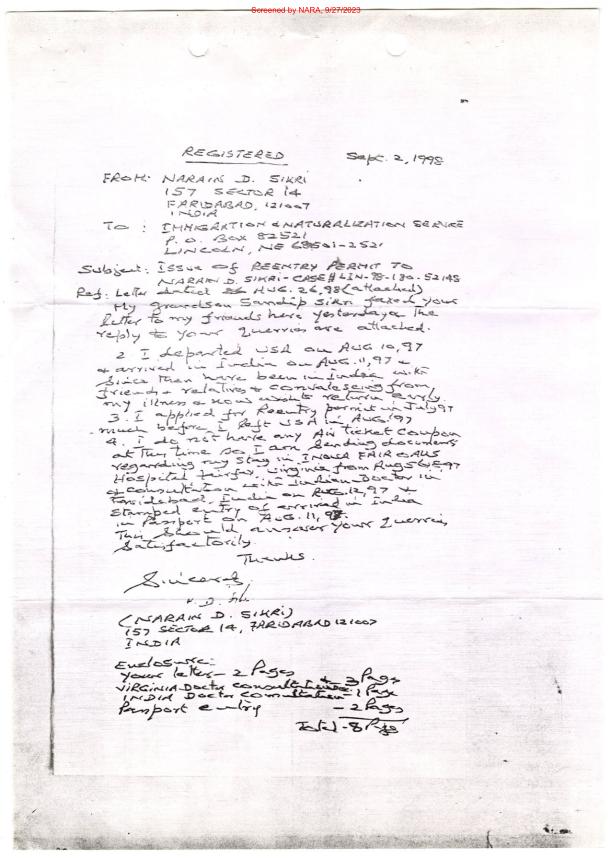 Screened by NARA, 9/27/2023
REGISTERED Sept. 2, 1998
FROM: NARAIN D. SIKRI
157 SECTOR 14
FARIDABAD, 121007
INDIA
TO : IMMIGRATION & NATURALIZATION SERVICE
P.O. BOX 82521
LINCOLN, NE 68501-2521
Subject: Issue of REENTRY PERMIT TO
NARAIN D. SIKRI - CASE # LIN-98-180-52148
Ref: Letter dated AUG. 26, 98 (attached)
My grandson Sandip Sikri faxed your
letter to my friends here yesterday & the
reply to your querries are attached.
2. I departed USA on AUG 10, 97
& arrived in India on AUG. 11, 97 &
since then have been in India with
friends & relatives & convalescing from
my illness & now want to return early.
3. I applied for Reentry permit in July 97
much before I left USA in AUG. 97
4. I do not have any Air ticket coupon
at this time so I am sending documents
regarding my stay in INOVA FAIR OAKS
Hospital Fairfax, Virginia from Aug 97
& consultation with Indian Doctor in
Faridabad, India on AUG. 12, 97 &
stamped entry of arrived in India
in Passport on AUG. 11, 97.
This should answer your querries
satisfactorily.
Thanks.
Sincerely,
(NARAIN D. SIKRI)
157 SECTOR 14, FARIDABAD 121007
INDIA
Enclosure:
your letter - 2 Pages
VIRGINIA Doctor consultation - 3 Pages
INDIA Doctor consultation - 1 Page
Passport entry - 2 Pages
Total - 8 Pgs